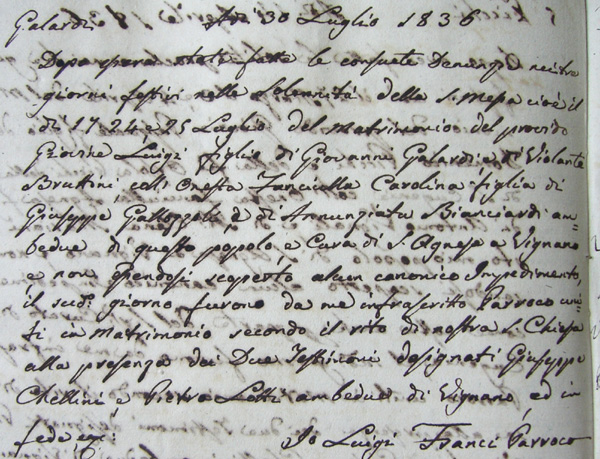 Galardi Adi 30 Luglio 1836
Dopo essersi state fatte le consuete Denunzie nei tre
giorni festivi nella Solennità della S. Messa cioè il
dì 17. 24 e 25 Luglio del Matrimonio del provido
Giovine Luigi figlio di Giovanni Galardi e di Violante
Bruttini coll'Onesta Fanciulla Carolina figlia di
Giuseppe Gallozzoli e di Annunziata Bianciardi am=
bedue di questo popolo e Cura di S. Agnese a Vignano
e non essendosi scoperto alcun canonico Impedimento,
il sud.º giorno furono da me infrascritto Parroco uni=
ti in Matrimonio secondo il rito di nostra S. Chiesa
alla presenza dei Due Testimoni designati Giuseppe
Chellini e Pietro Lotti ambedue di Vignano, ed in
fede
Io Luigi Franci Parroco